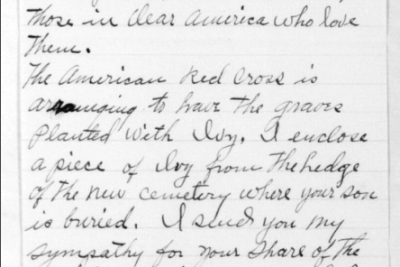 those in dear America who love
them.
The American Red Cross is
arranging to have the graves
planted with Ivy. I enclose
a piece of Ivy from the hedge
of the new cemetery where your son
is buried. I send you my
sympathy for your share of the